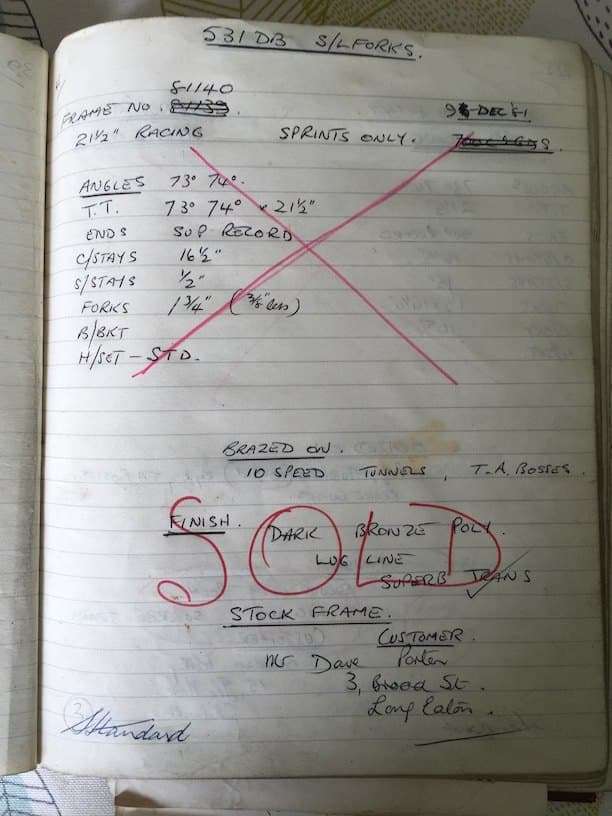 531 DB S/L FORKS.
81140
FRAME NO. 81139. DEC 81
21½" RACING SPRINTS ONLY.
ANGLES 73° 74°.
T.T. 73° 74° 21½"
ENDS SUP RECORD
C/STAYS 16½"
S/STAYS ½"
FORKS 1¾" (3/8" less)
B/BKT
H/SET - STD.
BRAZED ON.
10 SPEED TUNNELS, T.A. BOSSES.
SOLD
FINISH. DARK BRONZE POLY.
LUG LINE
SUPERB TRANS
STOCK FRAME.
CUSTOMER.
Mr Dave Porter
3, Broad St.
Long Eaton.
3
Standard